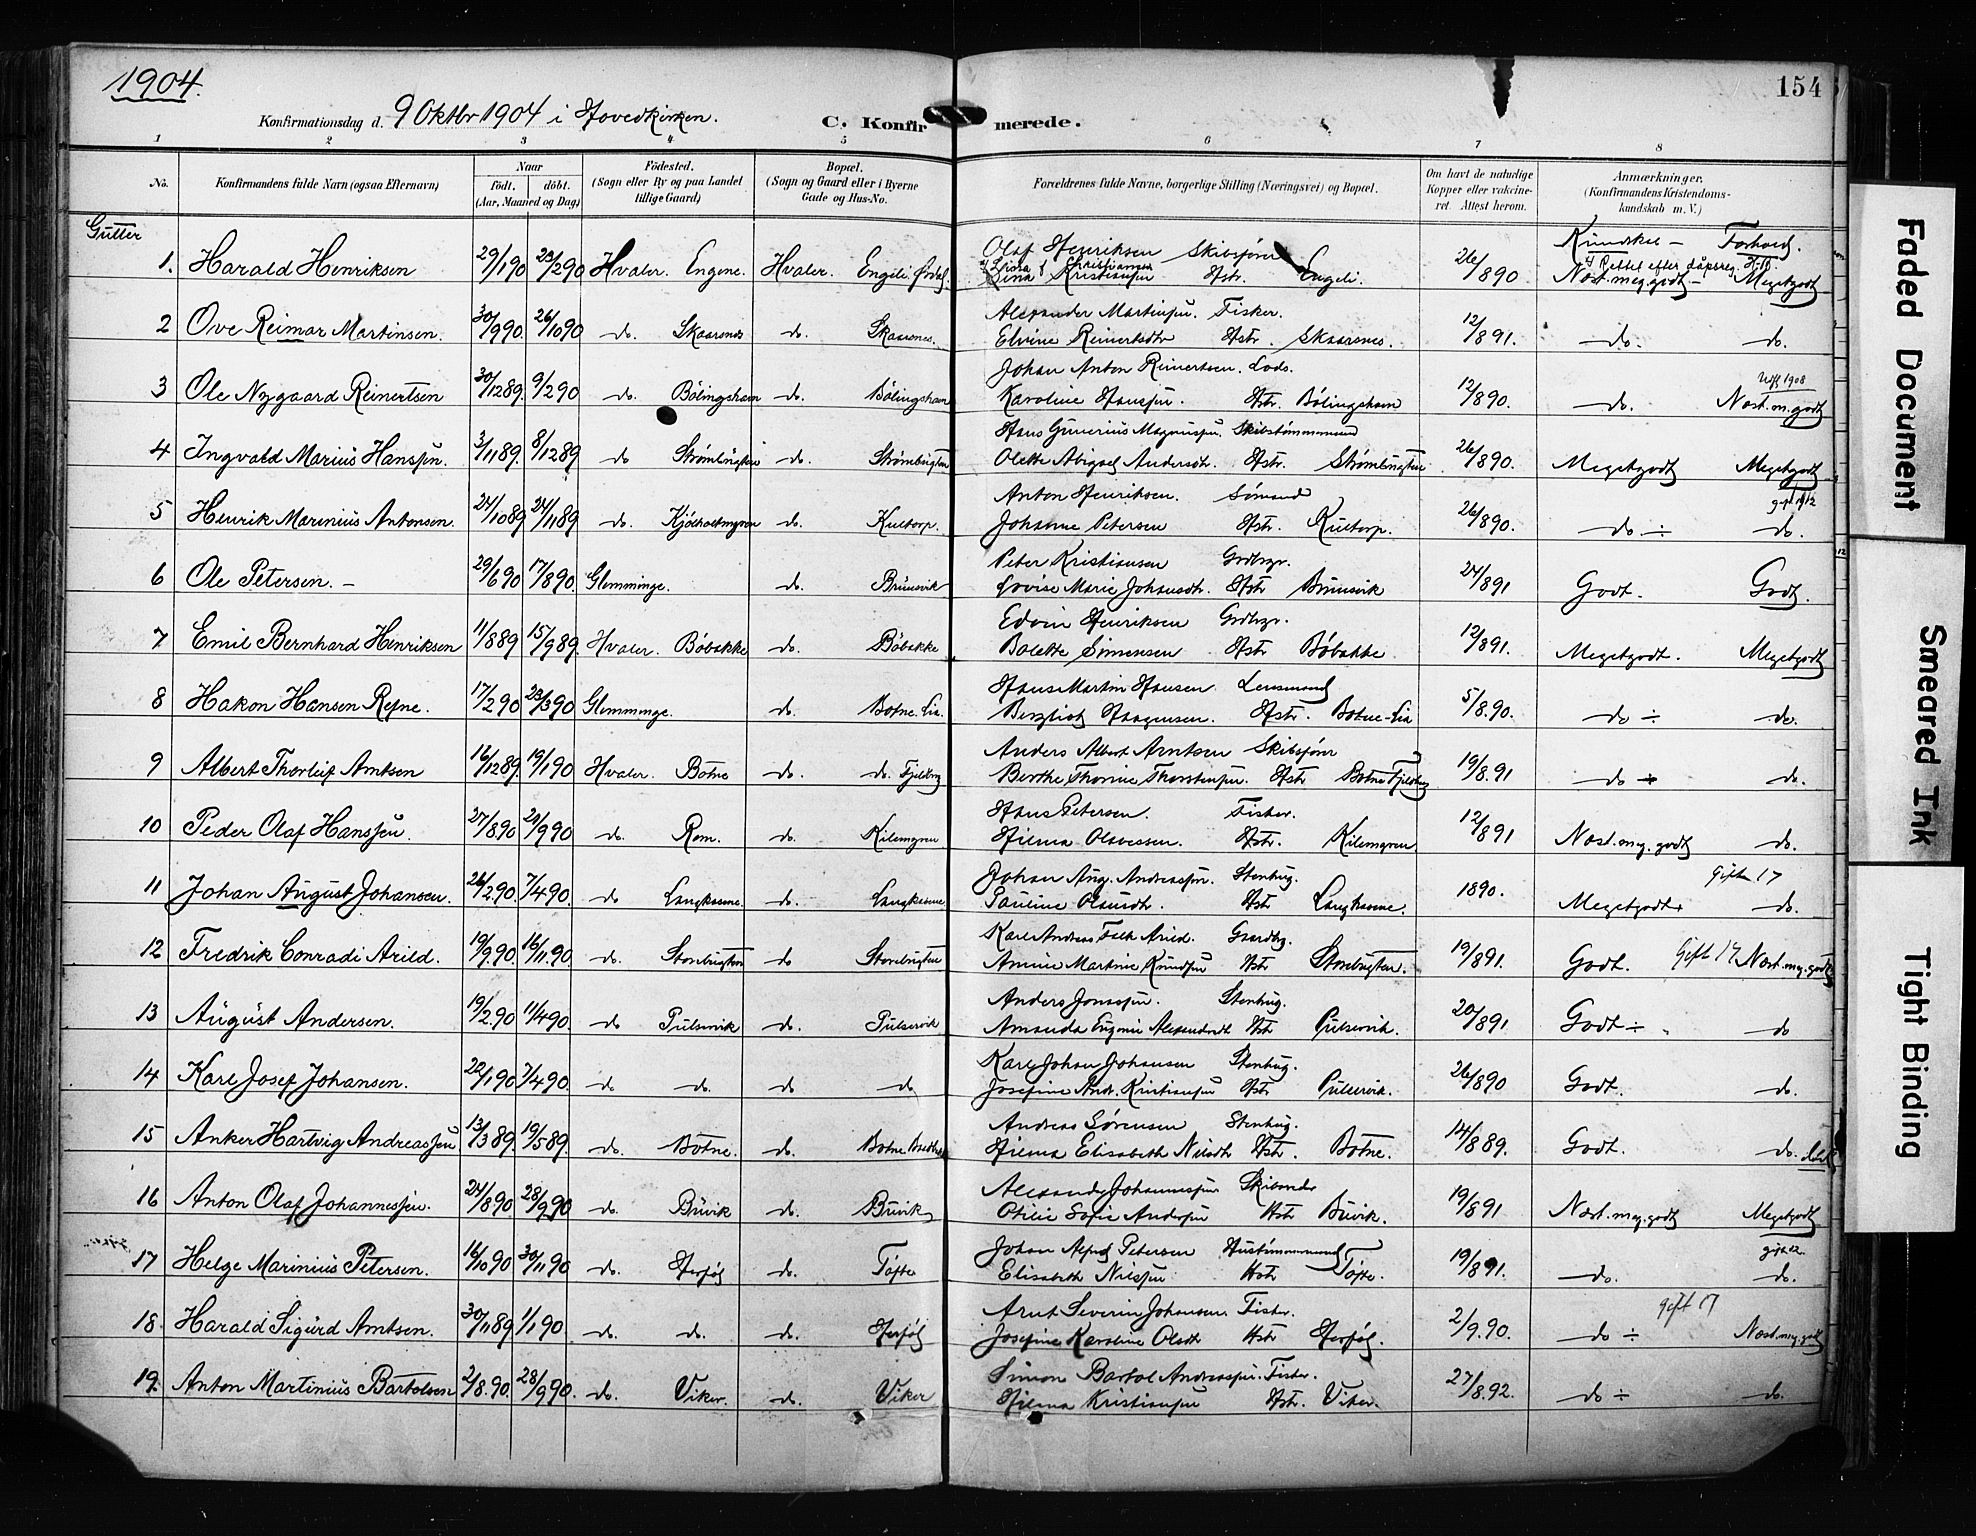 1904.
154
Konfirmationsdag d. 9 Oktbr 1904 i Hovedkirken.
C. Konfirmerede.
1 2 3 4 5 6 7 8
No.
Konfirmandens fulde Navn (ogsaa Efternavn)
Naar
født. døbt.
(Aar, Maaned og Dag)
Fødested.
(Sogn eller By og paa Landet
tillige Gaard)
Bopæl.
(Sogn og Gaard eller i Byerne
Gade og Hus-No.
Forældrenes fulde Navne, borgerlige Stilling (Næringsvei) og Bopæl.
Om havt de naturlige
Kopper eller vakcine-
ret. Attest herom.
Anmærkninger,
(Konfirmandens Kristendoms-
kundskab m. V.)
Gutter
Kundsk. — Forhold.
Olaf Henriksen Skibsfører
1. Harald Henriksen 29/1 90 23/2 90 Hvaler. Engene. Hvaler. Engeli
Lina Kristiansen Hstr. Engeli. 26/8 90 Næst. meg. godt — Megetgodt
Alexander Martinsen. Fisker.
2 Ove Reimar Martinsen. 30/9 90 26/10 90 do. Skaarsnes do. Skaarsnes.
Elvine Reinertsdtr Hstr. Skaarsnes. 12/8 91. do. do.
Johan Anton Reinertsen. Lods. 1908
3 Ole Nygaard Reinertsen 30/12 89. 9/2 90 do. Bølingshavn do. Bølingshavn
Karoline Hansen. Hstr. Bølingshavn 12/8 90. do. Næst. m. godt
Hans Gunerius Magnussen. Skibstømmermand
4 Ingvald Marius Hanssen. 3/11 89. 8/12 89 do Strømbugten do. Strømbugten
Olette Abigael Andersdtr. Hstr. Strømbugten 26/8 90. Megetgodt Megetgodt
Anton Henriksen. Sømand gift 1912
5 Henrik Marinius Antonsen. 24/10 89 24/11 89 do. Kjølholtmyren do. Kultorp.
Johanne Petersen Hstr. Kultorp. 26/8 90. do ÷ do.
Peter Kristiansen Grdbrgr.
6 Ole Petersen. — 29/6 90 17/8 90. Glemminge. do. Brunsvik
Lovise Marie Johansdtr. Hstr Brunsvik 24/8 91 Godt. Godt.
Edvin Henriksen Grdbrgr.
7 Emil Bernhard Henriksen 11/8 89 15/9 89. Hvaler. Bøbakke do. Bøbakke
Bolette Simensen Hstr Bøbakke 12/8 91. Megetgodt. Megetgodt
Hans Martin Hansen Lensmand
8 Hakon Hansen Rejne. 17/2 90 23/3 90 Glemminge. do. Botne-Lia.
Bergliot Haagensen. Hstr. Botne-Lia 5/8 90. do ÷ do.
Anders Albert Arntsen Skibsfører
9 Albert Thorleif Arntsen 16/12 89. 19/1 90 Hvaler. Botne do. do. Fjeldbrg
Berthe Thorine Thorstensen. Hstr Botne Fjeldbrg 19/8 91 do ÷ do.
Hans Petersen. Fisker.
10 Peder Olaf Hanssen 27/8 90 21/9 90 do. Rom. do. Kilemyren
Hilma Olavessen. Hstr. Kilemyren 12/8 91 Næst. mg. godt do.
Johan Aug. Andreassen. Stenhug. Gift 17
11 Johan August Johansen. 26/2 90. 7/4 90. do Langkaene. do. Langkaene
Pauline Olausdtr. Hstr Langkaene. 1890. Megetgodt. do.
Karl Andreas Falk Arild. Gaardbg.
12 Fredrik Conradi Arild. 19/9 90. 16/11 90 do. Storebugten do Storebugten
Amine Martine Knudsen Hstr Storebugten. 19/8 91. Godt. Gift 17 Næst. mg. godt
Anders Jonassen. Stenhug.
13 August Andersen. 19/2 90 11/4 90 do Pulservik do. Pulservik
Amanda Eugenie Alexandersdtr Hstr Pulservik. 20/8 91 Godt ÷ do
Karl Johan Johansen Stenhug.
14 Karl Josef Johansen. 22/1 90 7/4 90. do do. do do
Josefine And. Kristiansen Hstr Pulservik. 26/8 90 Godt. do.
Andreas Sørensen Stenhug.
15 Anker Hartvig Andreassen 13/3 89. 19/5 89. do. Botne. do. Botne
Hilma Elisabeth Nilsdtr Hstr. Botne. 14/8 89. Godt. do.
Alexander Johannessen
16 Anton Olaf Johannessen. 24/8 90 28/9 90 do. Buvik do. Buvik
Otilie Sofie Andersen Hstr Buvik. 19/8 91 Næst. meg. godt Megetgodt
Johan Alfred Petersen Hustømmermand
17 Helge Marinius Petersen. 16/10 90 30/11 90 do. Herføl do. Tofte
Elisabeth Nilssen Hstr Tofte. 19/8 91. do. do.
Arnt Severin Johansen Fisker. gift 17
18. Harald Sigurd Arntsen. 30/11 89 1/1 90 do. do. do. Herføl
Josefine Karoline Olsdtr Hstr Herføl. 2/9 90. do ÷ Næst. mg. godt
Simon Bartol Andreassen. Fisker.
19. Anton Martinius Bartolsen 2/8 90. 28/9 90. do. Viker. do. Viker
Hilma Kristiansen Hstr. Viker. 27/8 92. do ÷ do.
Faded Document
Smeared Ink
Tight Binding